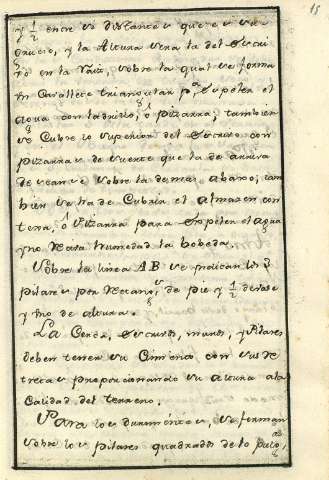 15
y 1/2 entre su distancia que es su
grueso, y la Altura sera la del
en la raiz, sobre la qual se forma
un Cavallete triangular pa. Expeler el
agua con ladrillo, ó pizarra; tambien
se Cubre lo superior del con
pizarras de suerte que la de arriva
descanse sobre la de mas abaxo, tam
bien se ha de Cubrir el Almazen con
texa, ó Pizarra para Expeler el Agua
y no Haia humedad la bobeda.
Sobre la linea AB se yndican los
Pilares por de pie y 1/2 de
y uno de altura.
La Cerca, muros, y Pilares
deben tener su Cimiento con sus
tretas proporcionando su altura a la
Calidad del terreno.
Para los durmientes, se forman
sobre los pilares quadrados de lo